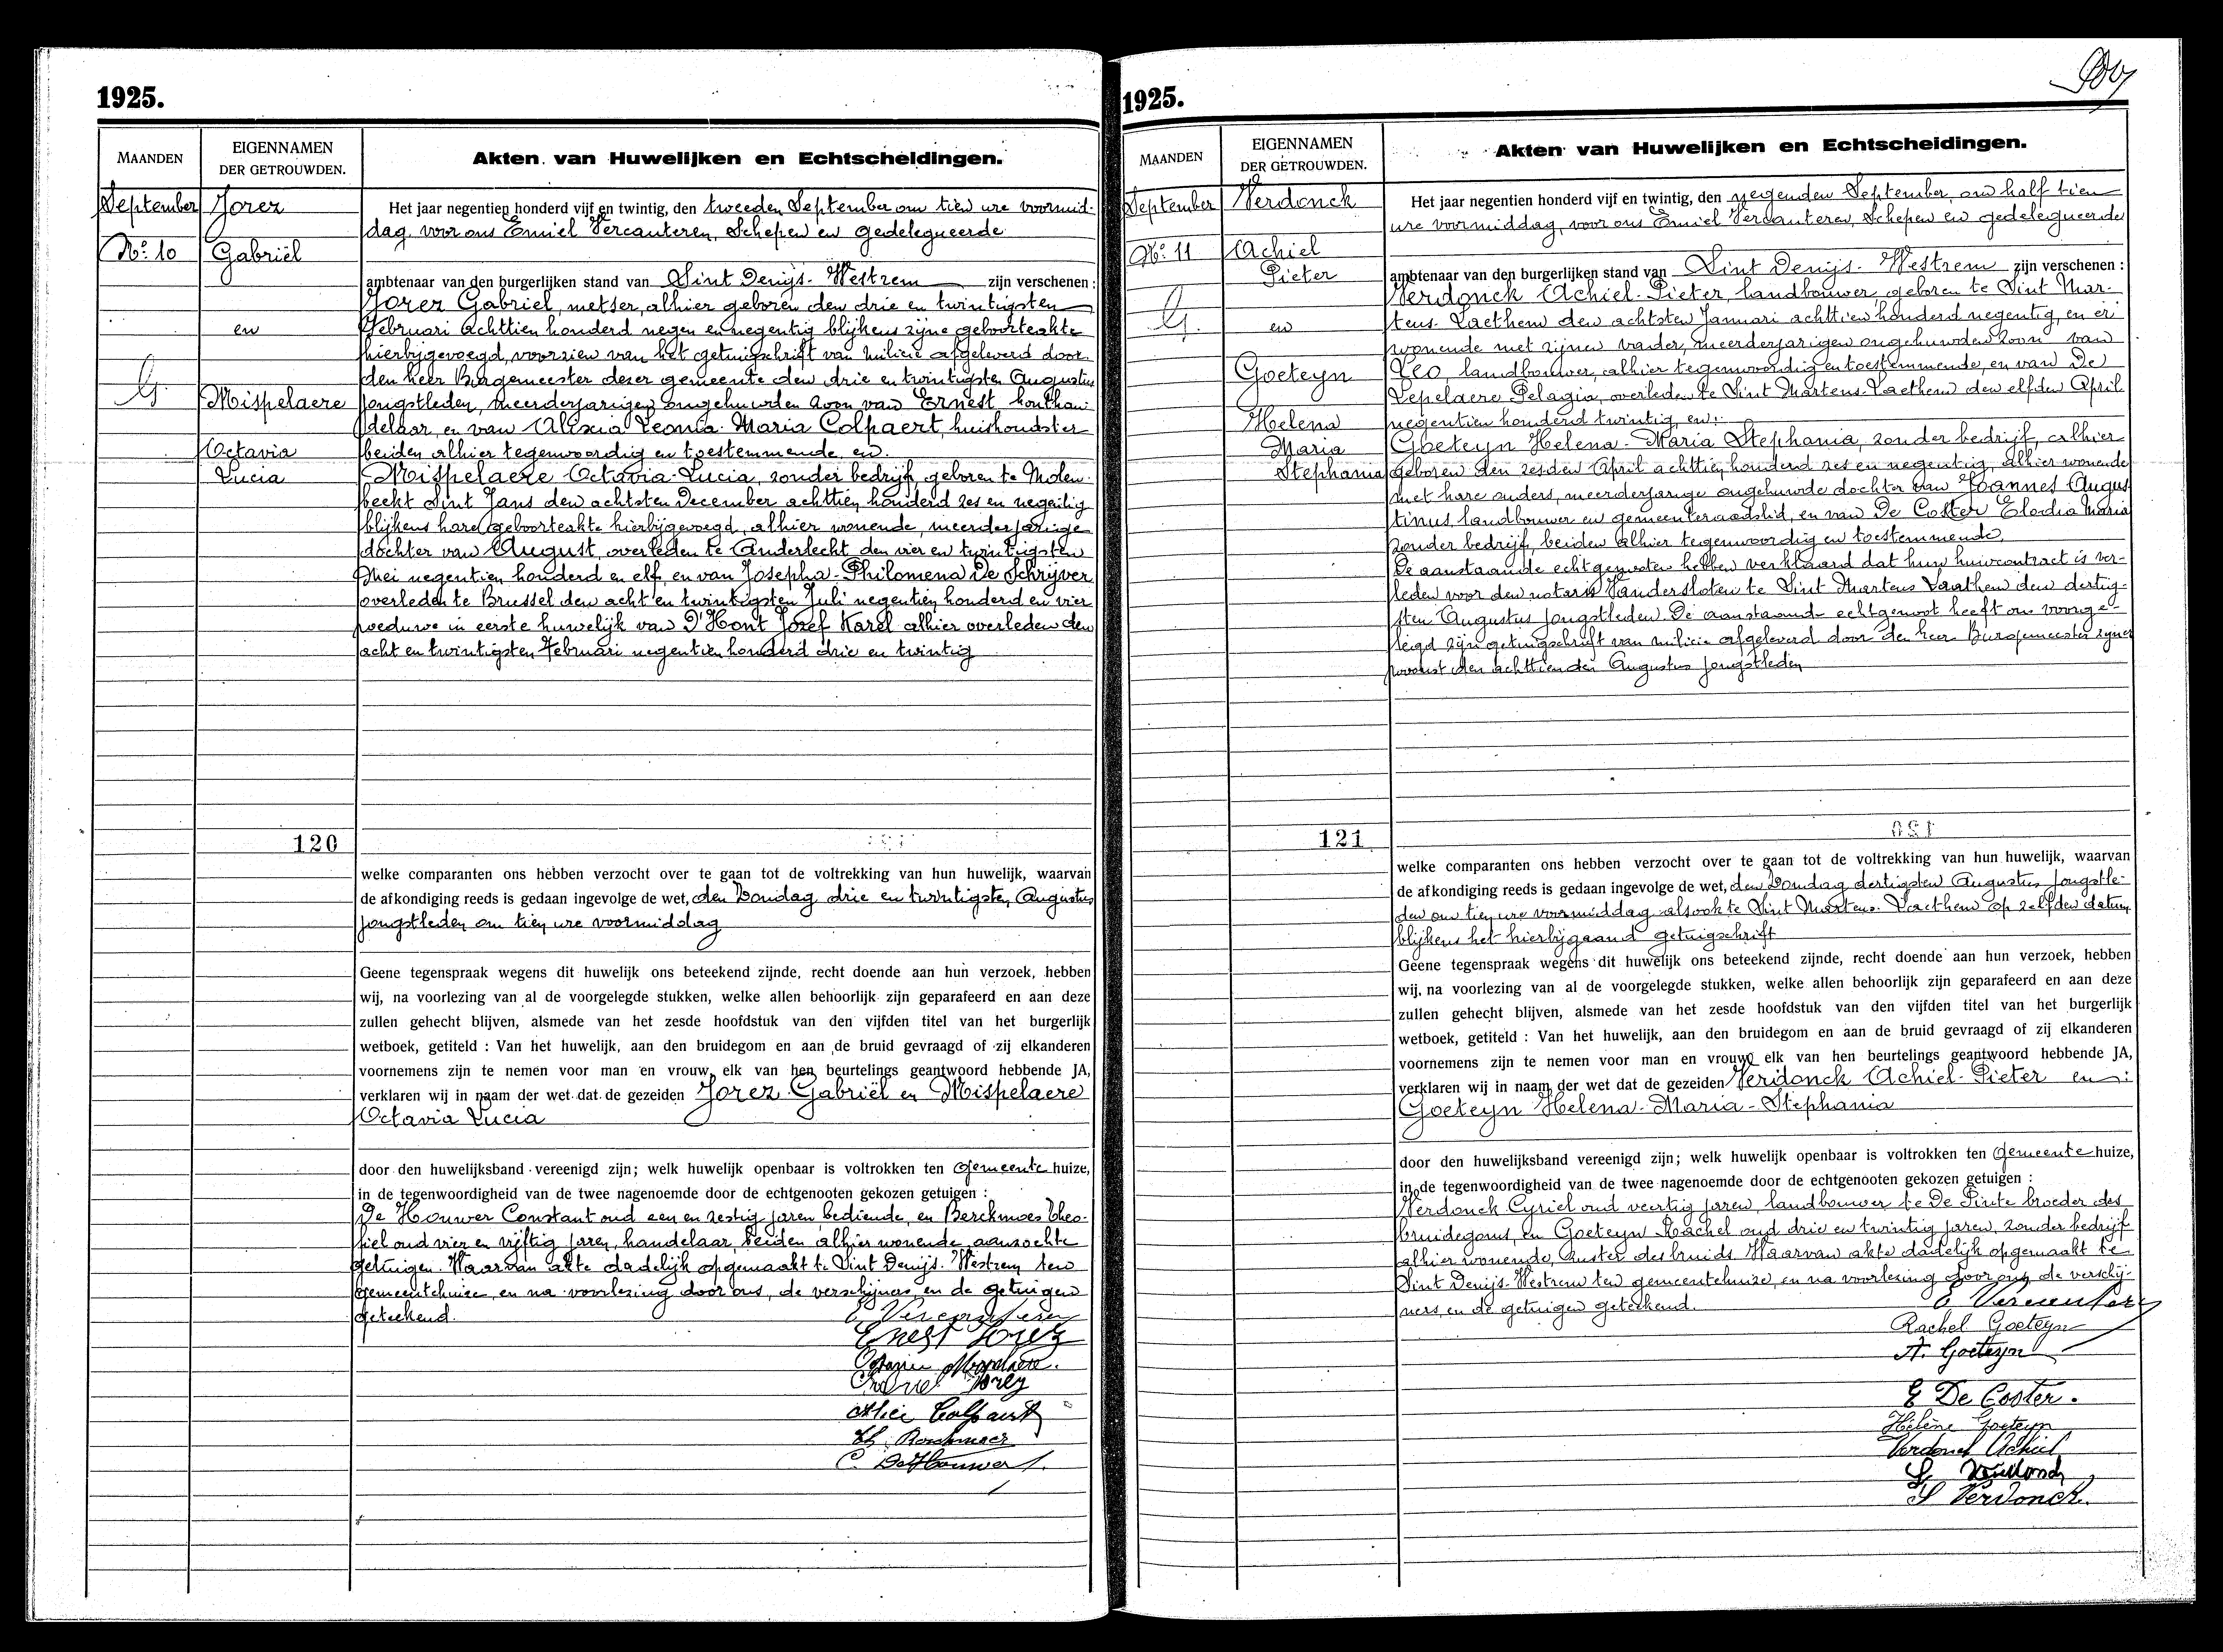 1925.
MAANDEN
EIGENNAMEN
DER GETROUWDEN.
Akten van Huwelijken en Echtscheidingen.
September
No 10
Jorez
Gabriël
en
Mispelaere
Octavia
Lucia
G.
Het jaar negentien honderd vijf en twintig, den tweeden September om tien ure voormid-
dag, voor ons Emiel Vercauteren, Schepen en gedelegueerde
ambtenaar van den burgerlijken stand van Sint Denijs-Westrem zijn verschenen :
Jorez Gabriel, metser, alhier geboren den drie en twintigsten
Februari achttien honderd negen en negentig blijkens zijne geboorteakte
hierbijgevoegd, voorzien van het getuigschrift van milicie afgeleverd door
den heer Burgemeester dezer gemeente den drie en twintigsten Augustus
jongstleden, meerderjarigen ongehuwden zoon van Ernest, houthan-
delaar, en van Alixia Leonia Maria Colpaert, huishoudster
beiden alhier tegenwoordig en toestemmende, en
Mispelaere Octavia-Lucia, zonder bedrijf, geboren te Molen-
beekt Sint Jans den achtsten December achttien honderd zes en negentig
blijkens hare geboorteakte hierbijgevoegd, alhier wonende, meerderjarige
dochter van August, overleden te Anderlecht den vier en twintigsten
Mei negentien honderd en elf, en van Josepha-Philomena De Schrijver
overleden te Brussel den acht en twintigsten Juli negentien honderd en vier
weduwe in eerste huwelijk van D'Hont Jozef Karel alhier overleden den
acht en twintigsten Februari negentien honderd drie en twintig
120
welke comparanten ons hebben verzocht over te gaan tot de voltrekking van hun huwelijk, waarvan
de afkondiging reeds is gedaan ingevolge de wet, den Zondag drie en twintigsten Augustus
jongstleden om tien ure voormiddag
Geene tegenspraak wegens dit huwelijk ons beteekend zijnde, recht doende aan hun verzoek, hebben
wij, na voorlezing van al de voorgelegde stukken, welke allen behoorlijk zijn geparafeerd en aan deze
zullen gehecht blijven, alsmede van het zesde hoofdstuk van den vijfden titel van het burgerlijk
wetboek, getiteld : Van het huwelijk, aan den bruidegom en aan de bruid gevraagd of zij elkanderen
voornemens zijn te nemen voor man en vrouw, elk van hen beurtelings geantwoord hebbende JA,
verklaren wij in naam der wet dat de gezeiden Jorez Gabriël en Mispelaere
Octavia Lucia
door den huwelijksband vereenigd zijn; welk huwelijk openbaar is voltrokken ten Gemeente huize,
in de tegenwoordigheid van de twee nagenoemde door de echtgenooten gekozen getuigen :
De Houwer Constant oud een en zestig jaren, bediende, en Berckmoes Theo-
fiel oud vier en vijftig jaren, handelaar, beiden alhier wonende, aanzochte
getuigen. Waarvan akte dadelijk opgemaakt te Sint Denijs-Westrem ten
gemeentehuize, en na voorlezing door ons, de verschijners, en de getuigen
geteekend.
E Vercauteren
Ernest Jorez
Octavie Mispelaere.
Gabriel Jorez
Colpaert
C. De Houwer
1925.
MAANDEN
EIGENNAMEN
DER GETROUWDEN.
Akten van Huwelijken en Echtscheidingen.
September
No 11
G.
Verdonck
Achiel
Pieter
en
Goeteyn
Helena
Maria
Stephania
Het jaar negentien honderd vijf en twintig, den negenden September, om half tien
ure voormiddag, voor ons Emiel Vercauteren, Schepen en gedelegueerde
ambtenaar van den burgerlijken stand van Sint Denijs-Westrem zijn verschenen :
Verdonck Achiel-Pieter, landbouwer, geboren te Sint Mar-
tens-Laethem den achtsten Januari achttien honderd negentig, en er
wonende met zijnen vader, meerderjarigen ongehuwden zoon van
Leo, landbouwer, alhier tegenwoordig en toestemmende, en van De
Lepelaere Pelagia, overleden te Sint Martens-Laethem den elfden April
negentien honderd twintig, en:
Goeteyn Helena-Maria Stephania, zonder bedrijf, alhier
geboren den zesden April achttien honderd zes en negentig, alhier wonende
met hare ouders, meerderjarige ongehuwde dochter van Joannes Augus
tinus, landbouwer en gemeenteraadslid, en van De Coster Elodia Maria
zonder bedrijf, beiden alhier tegenwoordig en toestemmende.
De aanstaande echtgenooten hebben verklaard dat hun huwcontract is ver-
leden voor den notaris Vandersloten te Sint Martens Laethem den dertig-
sten Augustus jongstleden. De aanstaande echtgenoot heeft ons voorge-
legd zijn getuigschrift van milicie afgeleverd door den heer Burgemeester zijner
woonst den achttienden Augustus jongstleden
121
120
welke comparanten ons hebben verzocht over te gaan tot de voltrekking van hun huwelijk, waarvan
de afkondiging reeds is gedaan ingevolge de wet, den Zondag dertigsten Augustus jongstle-
den om tien ure voormiddag alsook te Sint Martens-Laethem op zelfden datum
blijkens het hierbijgaand getuigschrift
Geene tegenspraak wegens dit huwelijk ons beteekend zijnde, recht doende aan hun verzoek, hebben
wij, na voorlezing van al de voorgelegde stukken, welke allen behoorlijk zijn geparafeerd en aan deze
zullen gehecht blijven, alsmede van het zesde hoofdstuk van den vijfden titel van het burgerlijk
wetboek, getiteld : Van het huwelijk, aan den bruidegom en aan de bruid gevraagd of zij elkanderen
voornemens zijn te nemen voor man en vrouw, elk van hen beurtelings geantwoord hebbende JA,
verklaren wij in naam der wet dat de gezeiden Verdonck Achiel-Pieter en :
Goeteyn Helena-Maria-Stephania
door den huwelijksband vereenigd zijn; welk huwelijk openbaar is voltrokken ten Gemeente huize,
in de tegenwoordigheid van de twee nagenoemde door de echtgenooten gekozen getuigen :
Verdonck Cyriel oud veertig jaren, landbouwer te De Pinte broeder des
bruidegoms, en Goeteyn Rachel oud drie en twintig jaren, zonder bedrijf
alhier wonende, zuster des bruids. Waarvan akte dadelijk opgemaakt te
Sint Denijs-Westrem ten gemeentehuize, en na voorlezing door ons, de verschij-
ners, en de getuigen geteekend.
E Vercauteren
Rachel Goeteyn
A. Goeteyn
E De Coster.
Hélène Goeteyn
Verdonck Achiel
Verdonck
Verdonck.